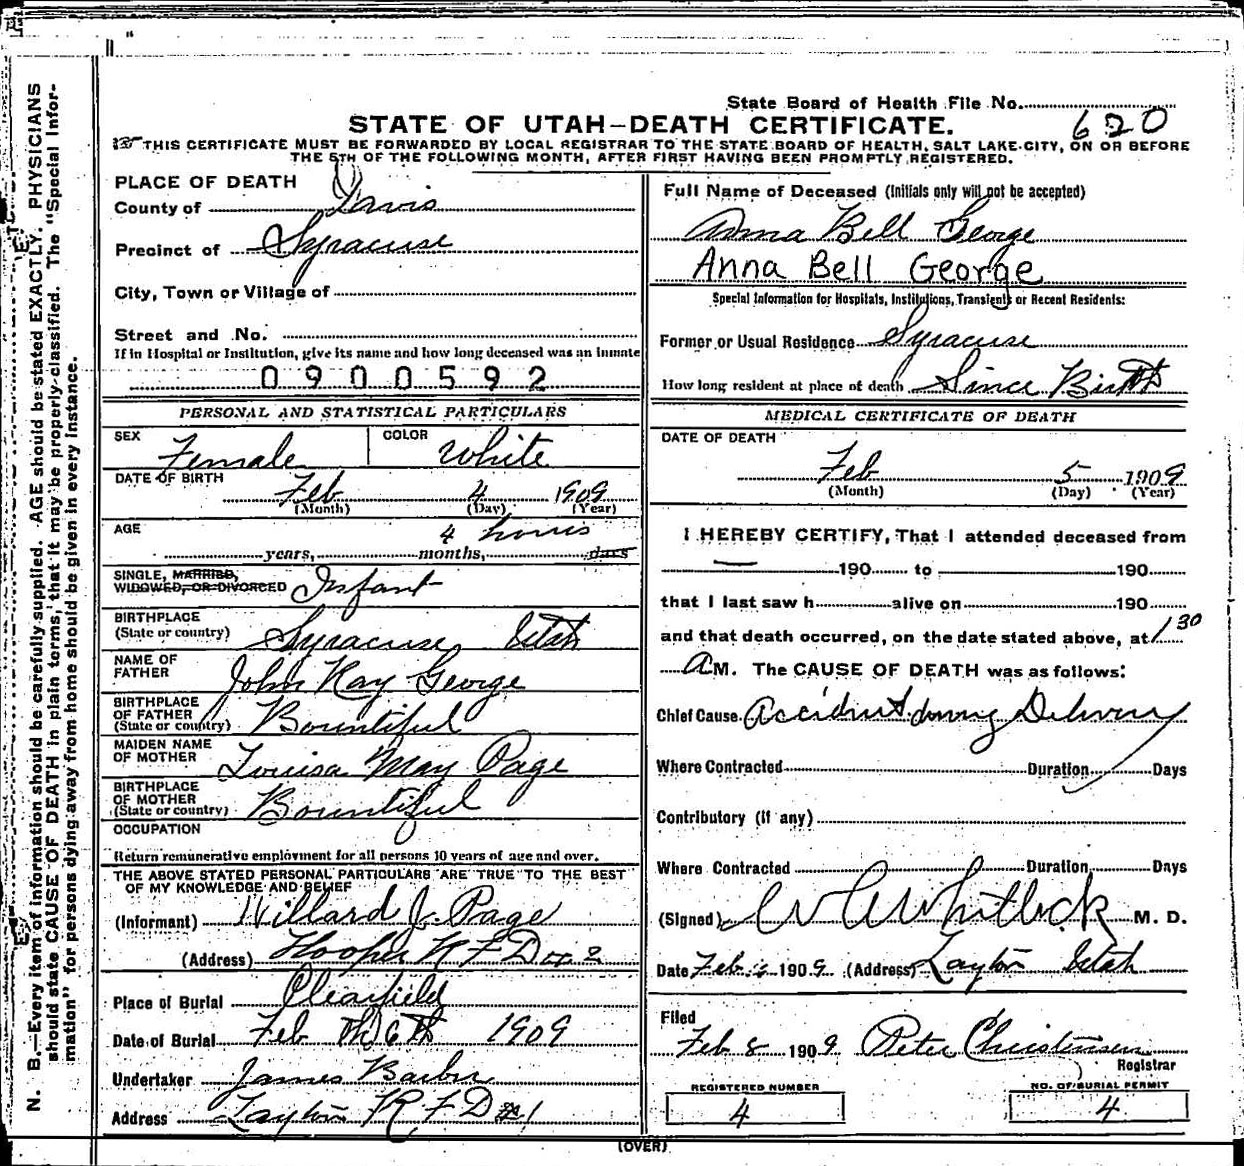 State Board of Health File No.
620
STATE OF UTAH–DEATH CERTIFICATE.
THIS CERTIFICATE MUST BE FORWARDED BY LOCAL REGISTRAR TO THE STATE BOARD OF HEALTH, SALT LAKE CITY, ON OR BEFORE
THE 5TH OF THE FOLLOWING MONTH, AFTER FIRST HAVING BEEN PROMPTLY REGISTERED.
N. B.—Every item of information should be carefully supplied. AGE should be stated EXACTLY. PHYSICIANS
should state CAUSE OF DEATH in plain terms, that it may be properly classified. The "Special Infor-
mation" for persons dying away from home should be given in every instance.
PLACE OF DEATH
County of Davis
Precinct of Syracuse
City, Town or Village of
Street and No.
If in Hospital or Institution, give its name and how long deceased was an inmate
0900592
PERSONAL AND STATISTICAL PARTICULARS
SEX Female COLOR White
DATE OF BIRTH Feb 4 1909
(Month) (Day) (Year)
AGE 4 hours
years, months, days
SINGLE, MARRIED,
WIDOWED, OR DIVORCED Infant
BIRTHPLACE
(State or country) Syracuse Utah
NAME OF
FATHER John Hay George
BIRTHPLACE
OF FATHER
(State or country) Bountiful
MAIDEN NAME
OF MOTHER Louisa May Page
BIRTHPLACE
OF MOTHER
(State or country) Bountiful
OCCUPATION
Return remunerative employment for all persons 10 years of age and over.
THE ABOVE STATED PERSONAL PARTICULARS ARE TRUE TO THE BEST
OF MY KNOWLEDGE AND BELIEF
(Informant) Willard J. Page
(Address) Hooper R F D 2
Place of Burial Clearfield
Date of Burial Feb 6th 1909
Undertaker James Barber
Address Layton R F D #1
Full Name of Deceased (Initials only will not be accepted)
Anna Bell George
Anna Bell George
Special Information for Hospitals, Institutions, Transients or Recent Residents:
Former or Usual Residence Syracuse
How long resident at place of death Since Birth
MEDICAL CERTIFICATE OF DEATH
DATE OF DEATH
Feb 5 1909
(Month) (Day) (Year)
I HEREBY CERTIFY, That I attended deceased from
— 190 to 190
that I last saw h alive on 190
and that death occurred, on the date stated above, at 1 30
A M. The CAUSE OF DEATH was as follows:
Chief Cause Accident during Delivery
Where Contracted Duration Days
Contributory (if any)
Where Contracted Duration Days
(Signed) Whitlock M. D.
Date Feb 1909 (Address) Layton Utah
Filed
Feb 8 1909 Peter Christensen
Registrar
REGISTERED NUMBER
4
NO. OF BURIAL PERMIT
4
(OVER)